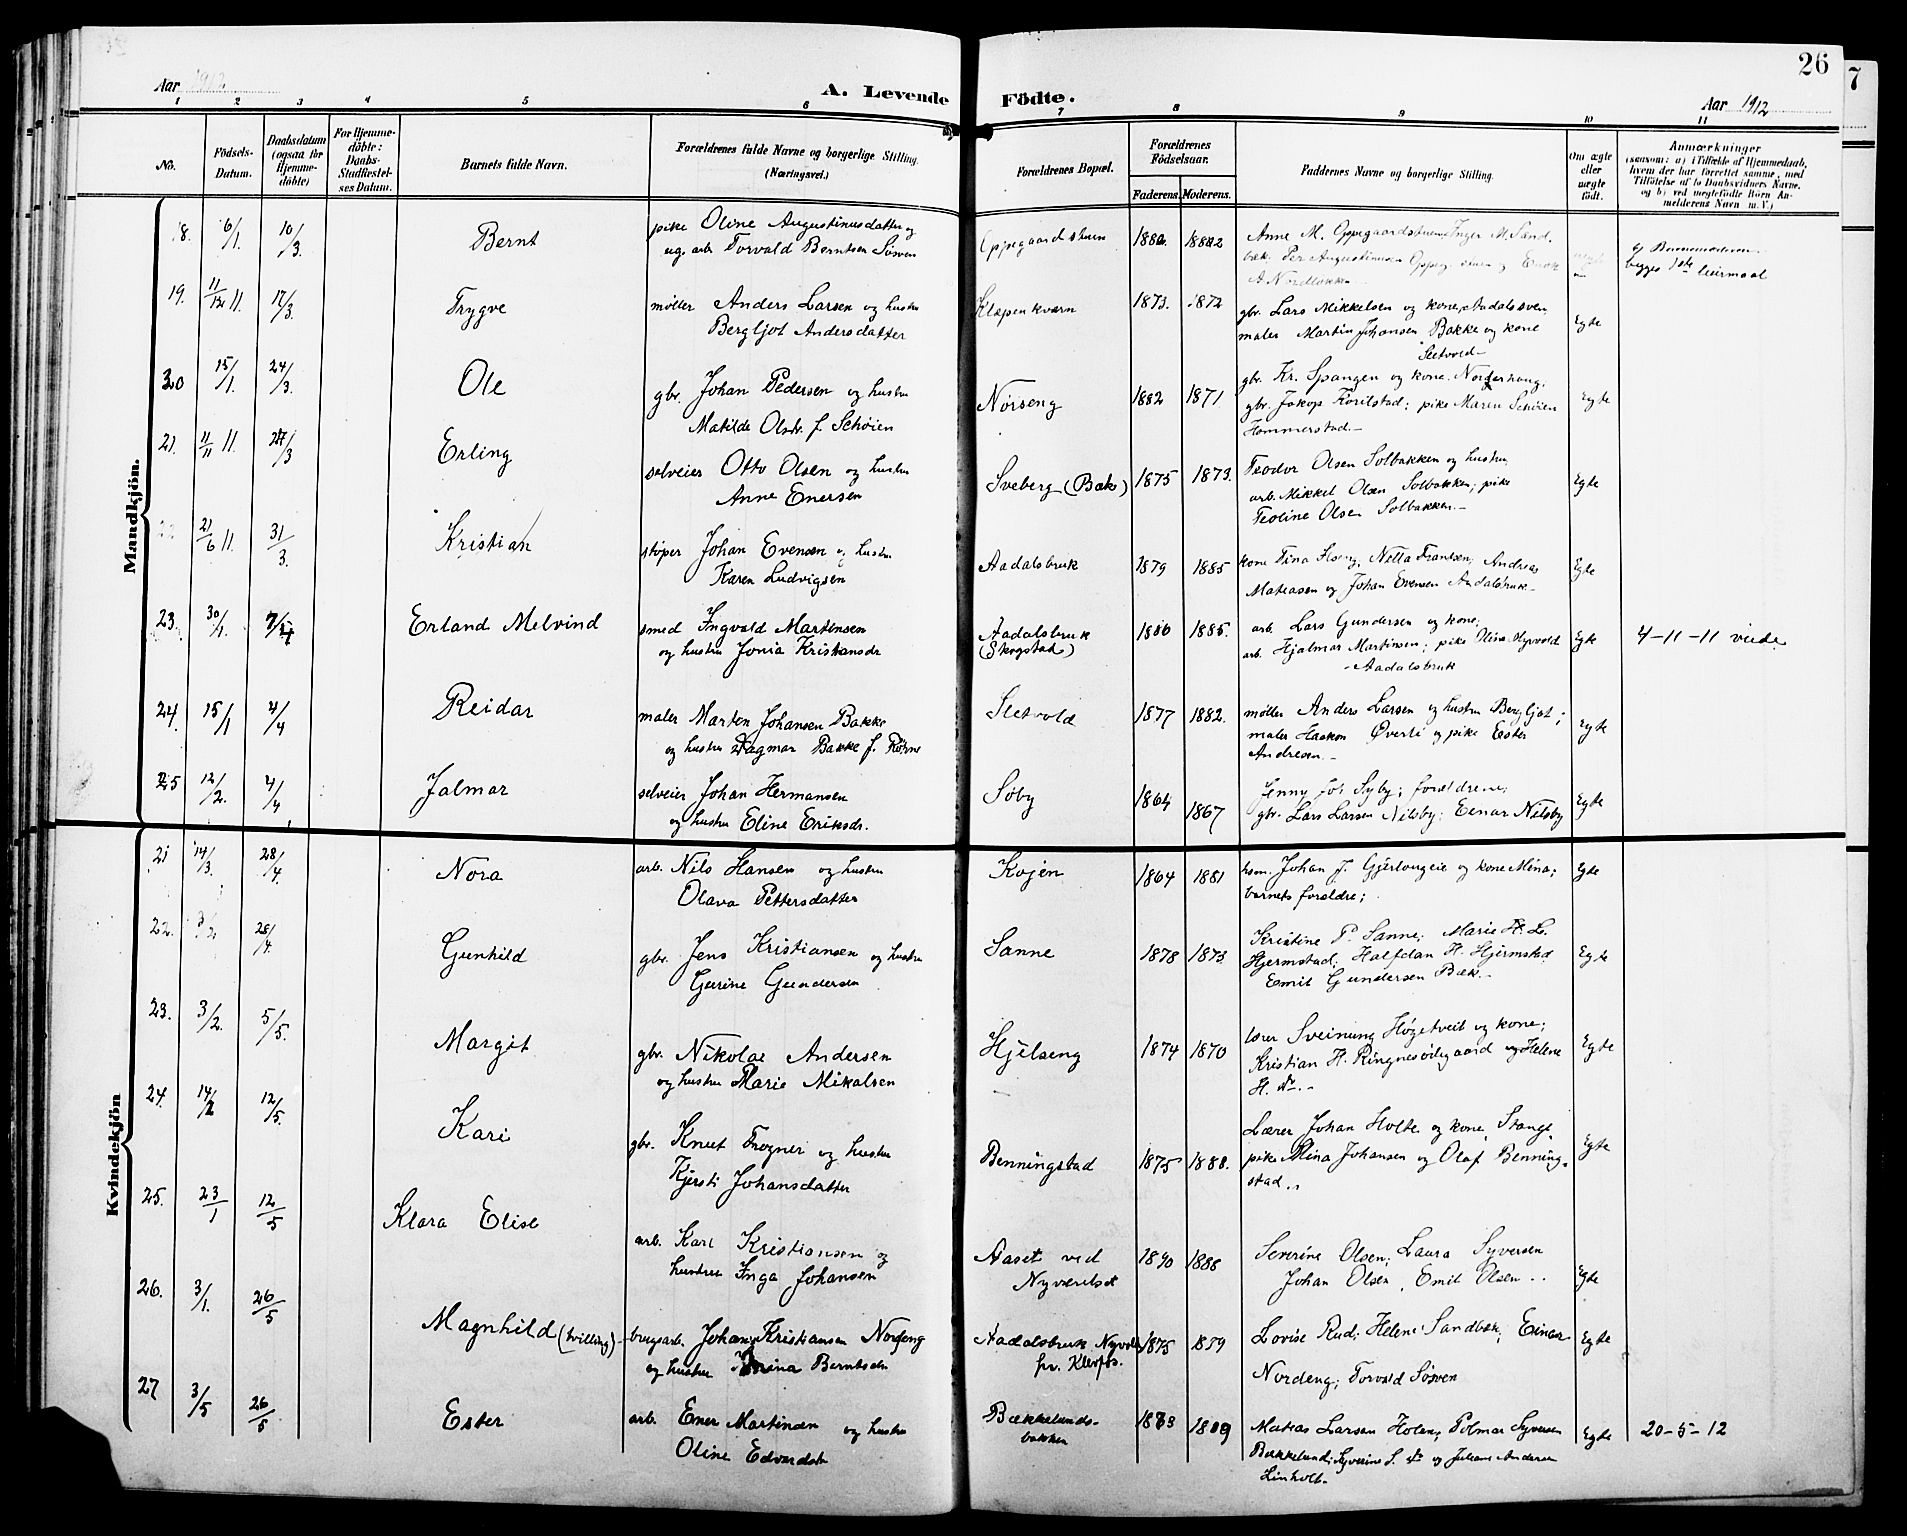 Aar 1912
A. Levende Födte.
26
Aar 1912
7
1 2 3 4 5 6 7 8 9 10 11
No.
Födsels-
Datum.
Daabsdatum
(ogsaa for
Hjemme-
döbte)
For Hjemme-
döbte:
Daabs-
Stadfæstel-
ses Datum.
Barnets fulde Navn.
Forældrenes fulde Navne og borgerlige Stilling.
(Næringsvei.)
Forældrenes Bopæl.
Forældrenes
Födselsaar.
Faderens. Moderens.
Faddernes Navne og borgerlige Stilling.
Om ægte
eller
uægte
födt.
Anmærkninger
(saasom: a) i Tilfælde af Hjemmedaab,
hvem der har forrettet samme, med
Tilföielse af to Daabsvidners Navne,
og b) ved uægtefödte Börn An-
melderens Navn m. V.)
Mandkjön.
18. 6/1. 10/3. Bernt
pike Oline Augustinusdatter og
ug. arb. Torvald Berntsen Søsven
Oppegaardstuen 1882
Anne M. Oppegaardstuen Inger M. Sand-
bæk Per Augustinusen
begges 1ste leiermaal
19. 11/12 11. 17/3. Trygve
møller Anders Larsen og hustru
Bergljot Andersdatter
Klæpenkværn 1873. 1872
gbr. Lars Mikkelsen og kone, Aadalssven,
maler Martin Johansen Bakke og kone
Sletvold
Egte
20 15/1. 24/3. Ole
gbr. Johan Pedersen og hustru
Matilde Olsdr. f. Schøien
Nørseng 1882 1871
gbr. Kr. Spangen og kone, Norderhaug;
gbr. Jakop Torilstad; pike Maren Schøien
Hommerstad.
Egte
21. 11/11 11. 24/3 Erling
selveier Otto Olsen og hustru
Anne Enersen
Sveberg (Bæk) 1875 1873.
Teodor Olsen Solbakken og hustru,
arb. Mikkel Olsen Solbakken; pike
Teoline Olsen Solbakken.
Egte
22 21/6 11. 31/3. Kristian
støper Johan Evensen og hustru
Karen Ludvigsen
Aadalsbruk 1879 1885
kone Tina Netta Frantsen, Andreas
Mateasen og Johan Evensen Aadalsbruk.
Egte
23. 30/1. 7/4 Erland Melvind
smed Ingvald Martinsen
og hustru Jonia Kristiansdr
Aadalsbruk 1886 1885.
(Skogstad)
arb. Lars Gundersen og kone;
arb. Hjalmar Martinsen; pike Olina Nyvold
Aadalsbruk
Egte 4-11-11 viede.
24. 15/1 4/4 Reidar
maler Marten Johansen Bakke
og hustru Dagmar Bakke f. Röhne
Sletvold 1877 1882.
møller Anders Larsen og hustru Bergljot;
maler Haakon Øverli og pike Ester
Andresen.
Egte
25 12/2. 4/4 Jalmar
selveier Johan Hermansen
og hustru Eline Eriksdr.
Søby 1864 1867
Jenny Joh Syby; forældrene;
gbr. Lars Larsen Nilsby; Einar Nilsby
Egte
Kvindekjön
21 14/3. 28/4. Nora
arb. Nils Hansen og hustru
Olava Pettersdatter
Kojen 1864 1881
hsm. Johan J. Gjerlougeie og kone Mina;
barnets forældre;
Egte
22. 28/4. Gunhild
gbr. Jens Kristiansen og hustru
Gurine Gundersen
Sanne 1878 1873
Kristine P. Sanne; Marie H. L.
Hjermstad; Halfdan H. Hjermstad
Emil Gundersen Bæk.
Egte
23. 3/2. 5/5. Margit
gbr. Nikolai Andersen
og hustru Marie Mikalsen
Hjelseng 1874 1870
lærer Sveinung Høgetveit og kone;
Kristian H. Ringnesödegaard og Helene
H. do.
Egte
24. 14/2 12/5. Kari
gbr. Knut Frogner og hustru
Kjersti Johansdatter
Benningstad 1875 1888.
Lærer Johan Holte og kone, Stange,
pike Mina Johansen og Olaf Benning-
stad.
Egte
25. 23/1 12/5 Klara Elise
arb. Karl Kristiansen og
hustru Inga Johansen
Aaset ved 1890 1888
Nyværelset
Severine Olsen; Laura Syversen
Johan Olsen, Emil Olsen
Egte
26. 3/1. 26/5 Magnhild (tvilling)
brugsarb. Johan Kristiansen Nordeng
og hustru Berntsdr
Aadalsbruk, 1875 1879
fr. Klevfos.
Lovise Rud; Helene Sandbæk; Einar
Nordeng; Torvald Søsven
Egte
27 3/5 26/5 Ester
arb. Ener Martinsen og hustru
Oline Edvardsdr
Bækkelunds- 1883 1889
bakken
Mateas Larsen Holen, Polmar Syversen
Bækkelund; Syverine S. do og Julians Andersen
Lindholt.
Egte 20-5-12